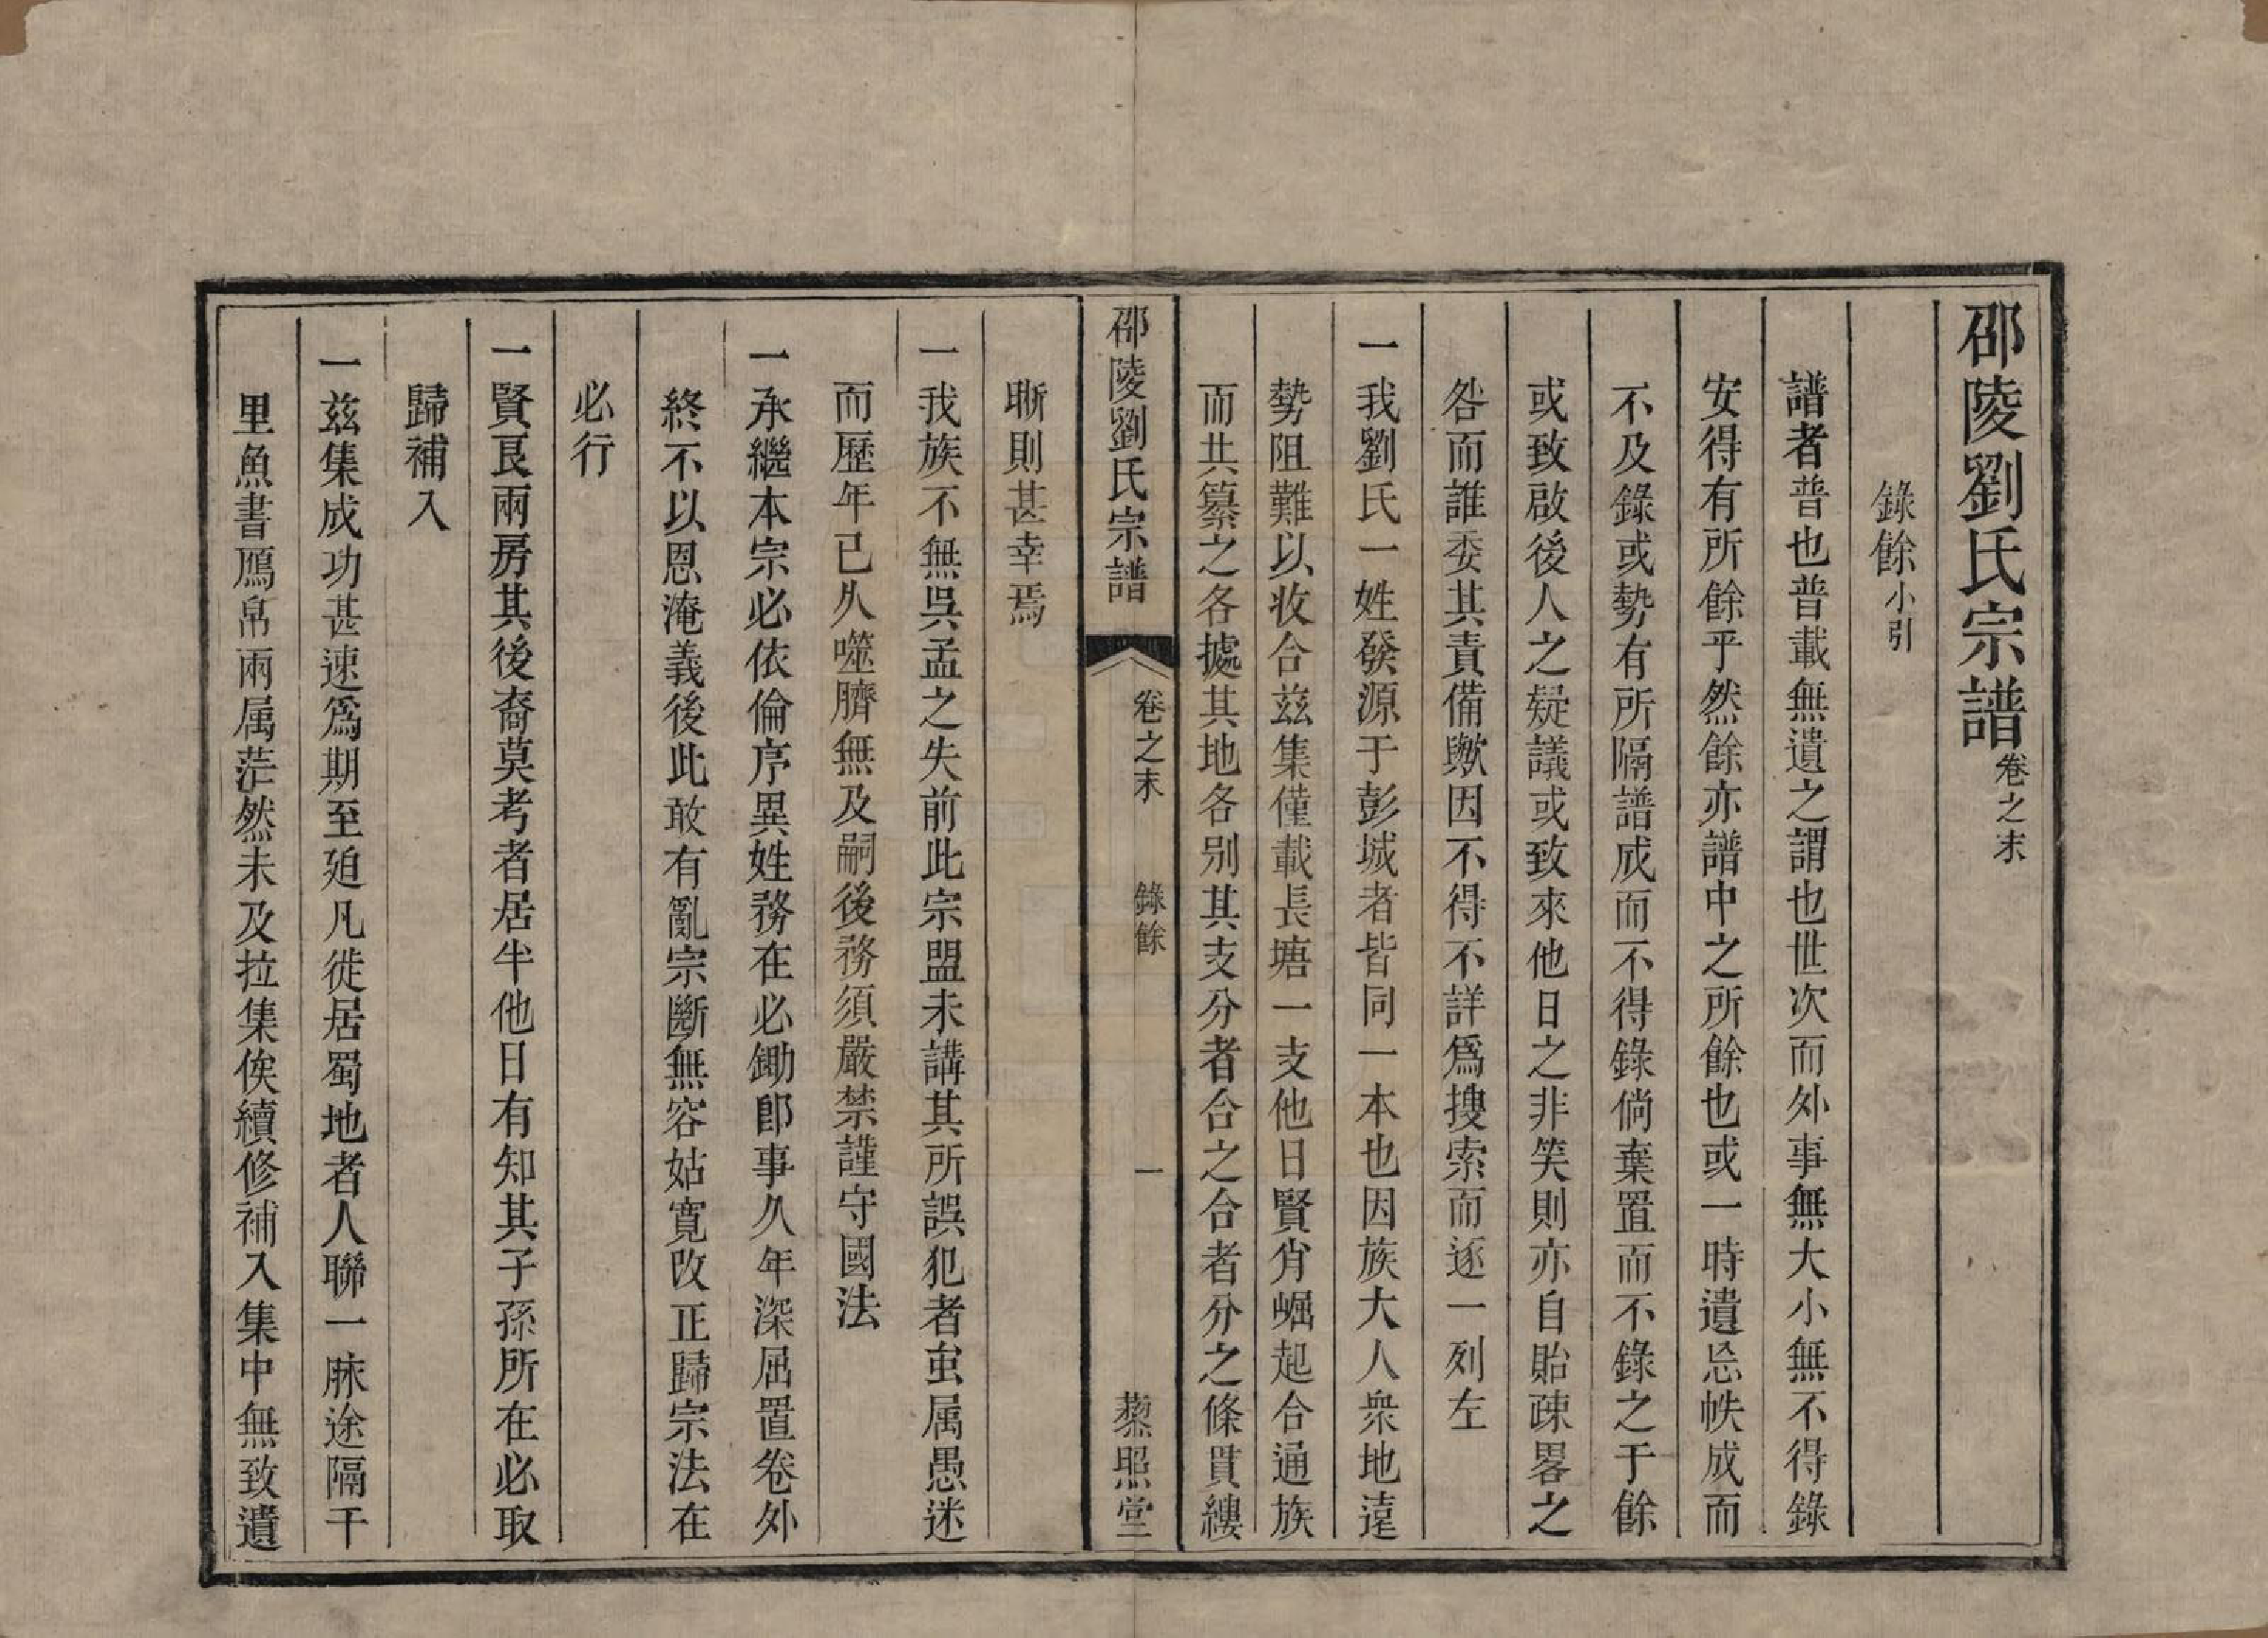 邵陵劉氏宗譜卷之末
錄餘小引
譜者普也普載無遺之謂也世次而外事無大小無不得錄
安得有所餘乎然餘亦譜中之所餘也或一時遺忘帙成而
不及錄或勢有所隔譜成而不得錄倘棄置而不錄之于餘
或致啟後人之疑議或致來他日之非笑則亦自貽疎畧之
咎而誰委其責備歟因不得不詳爲搜索而逐一列左
一我劉氏一姓發源于彭城者皆同一本也因族大人衆地遠
勢阻難以收合茲集僅載長塘一支他日賢肖崛起合通族
而共纂之各據其地各别其支分者合之合者分之條貫縷
邵陵劉氏宗譜
卷之末
錄餘
一
藜照堂
晰則甚幸焉
一我族不無吳孟之失前此宗盟未講其所誤犯者虽属愚迷
而歷年已久噬臍無及嗣後務須嚴禁謹守國法
一承繼本宗必依倫序異姓務在必鋤卽事久年深屈置卷外
終不以恩淹義後此敢有亂宗斷無容姑寬改正歸宗法在
必行
一賢良兩房其後裔莫考者居半他日有知其子孫所在必取
歸補入
一茲集成功甚速爲期至廹凡徙居蜀地者人聯一脉途隔千
里魚書鴈帛兩属茫然未及拉集俟續修補入集中無致遺